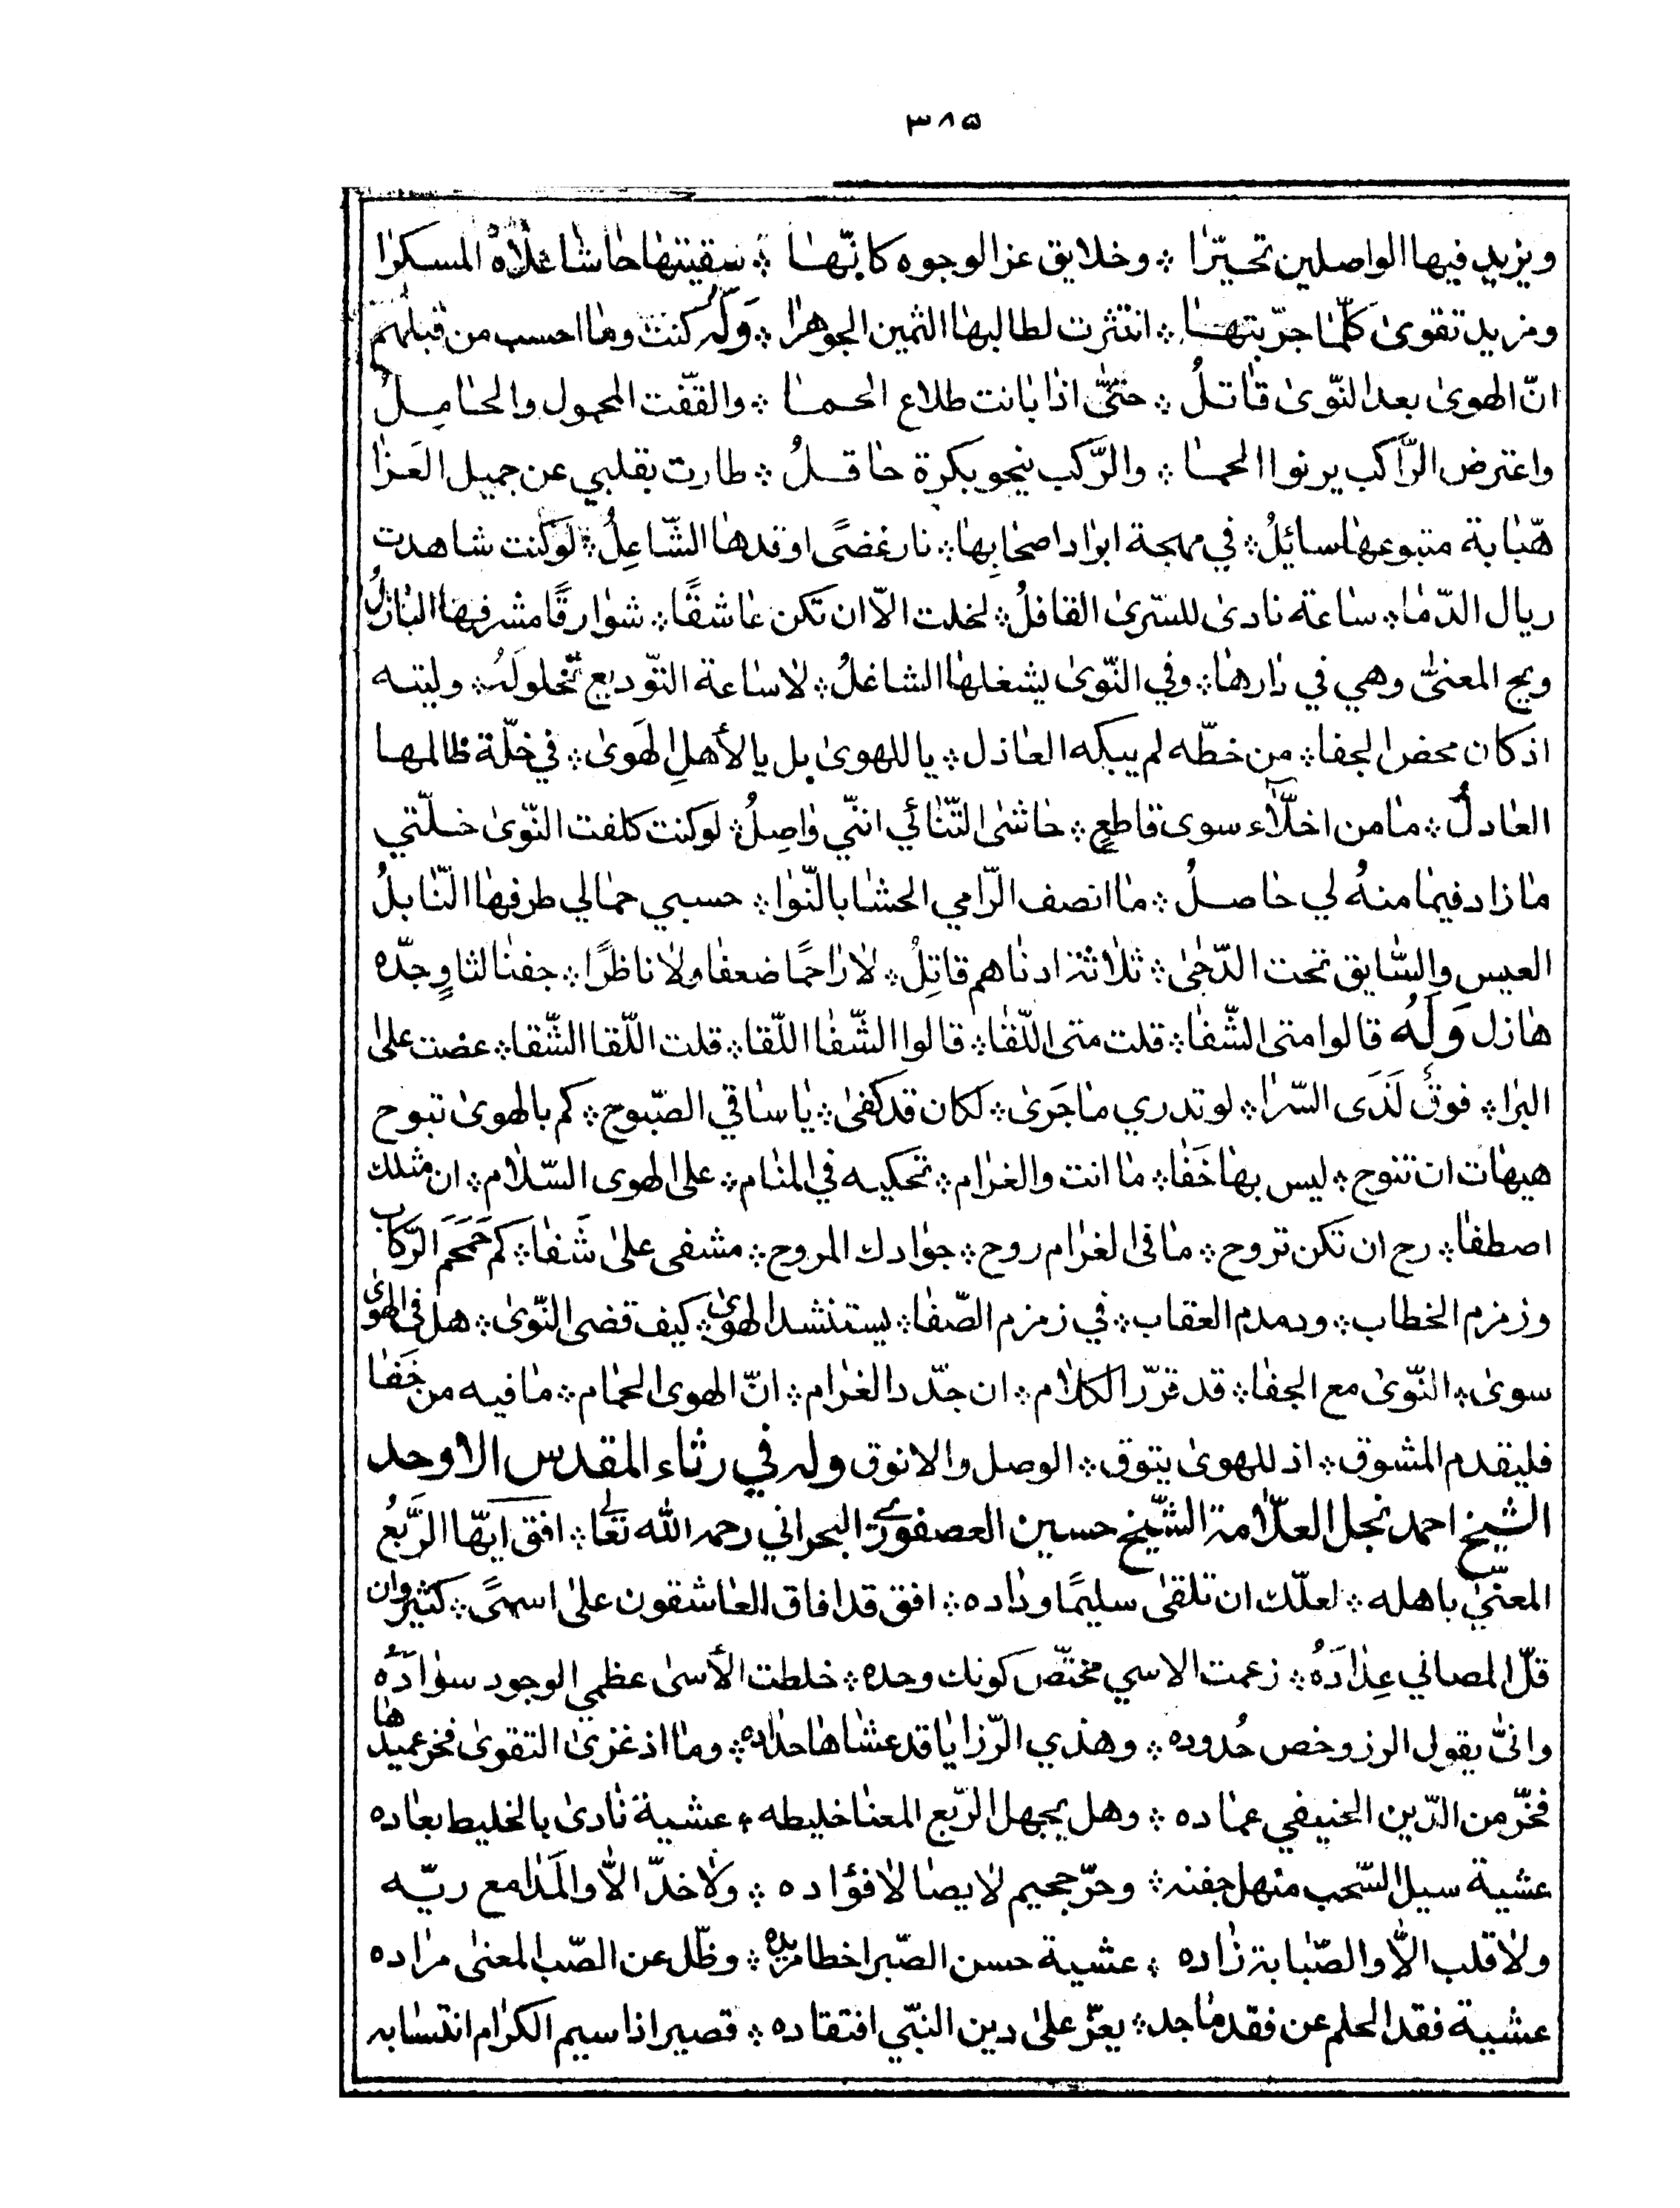 ٣٨٥
ويزيد فيها الواصلين تحيّرا ∴ وخلايق عز الوجوه كانّها ∴ سقيتها حاشا علاه المسكرا
ومزيد تقوى كلّما جرّبتها ∴ انتثرت لطالبها الثمين الجوهرا ∴ وَلَهُ كنت وما احسب من قبلهم
انّ الهوى بعد النّوى قاتلُ ∴ حتّى اذا بانت طلاع الحما ∴ والقفّت المحمول والحاملُ
واعترض الرّاكب يرنوا الحما ∴ والرَّكب ينحو بكرة حاقلُ ∴ طارت بقلبي عن جميل العَزا
هّبابة متبوعها سائلُ ∴ في مهجة ابراد اصحابِها ∴ نار غضًى اوقدها الشّاعِلُ ∴ لَو كنت شاهدت
ريال الدّما ∴ ساعة نادى للسّرى القافلُ ∴ لخلت الّا ان تكن عاشقًا ∴ شوارقًا مشرفها البازلُ
ويح المعنّى وهي في دارها ∴ وفي النّوى يشغلها الشاغلُ ∴ لا ساعة التّوديع تحلولهُ ∴ وليته
اذ كان محض الجفا ∴ من خطّه لم يبكه العاذل ∴ يا للهوى بل يا لأهلِ الهَوى ∴ في خلّة ظالمها
العادلُ ∴ ما من اخلّاء سوى قاطعٍ ∴ حاشى التّنائي انّني واصِلُ ∴ لو كنت كلفت النّوى خلّتي
ما زاد فيما منهُ لي حاصلُ ∴ ما انصف الرّامي الحشا بالنّوا ∴ حسبي حمالي طرفها النّابلُ
العيس والسّايق تحت الدّجى ∴ ثلاثة ادناهم قاتِلُ ∴ لا راحمًا ضعفا ولا ناظرًا ∴ جفنا لثاوٍ وجدّه
هازل وَلَهُ قالوا متى الشّفا ∴ قلت متى اللّقا ∴ قالوا الشّفا اللّقا ∴ قلت اللّقا الشّقا ∴ عضت على
البرا ∴ فوق لَذَى السّرا ∴ لو تدري ما جَرى ∴ لكان قد كفى ∴ يا ساقي الصّبوح ∴ كم بالهوى تبوح
هيهات ان تنوح ∴ ليس بها خَفا ∴ ما انت والغرام ∴ تحكيه في المنام ∴ على الهوى السّلام ∴ ان مثلك
اصطفا ∴ رح ان تكن تروح ∴ ما في الغرام روح ∴ جوادك المروح ∴ مشفى على شَفا ∴ كم حَمحَمَ الرّكاب
وزمزم الخطاب ∴ ودمدم العقاب ∴ في زمزم الصّفا ∴ يستنشد الهوى ∴ كيف قضى النّوى ∴ هل في الهوى
سوى ∴ النّوى مع الجفا ∴ قد قرّر الكلام ∴ ان جدّد الغرام ∴ انّ الهوى الحمام ∴ ما فيه من خَفا
فليقدم المشوق ∴ اذ للهوى يتوق ∴ الوصل والانوق وله في رثاء المقدس الاوحد
الشيخ احمد نجل العلّامة الشّيخ حسين العصفوري البحراني رحمه الله تعالى ∴ افق ايّها الرَّبعُ
المعنّى باهله ∴ لعلّك ان تلقى سليمًا وداده ∴ افق قد افاق العاشقون على اسمىً ∴ كثير وان
قلّ المصاني عِدادَهُ ∴ زعمت الاسي مختصّ كونك وحده ∴ خلطت الأسى عظمي الوجود سوادَهُ
وانّى يقول الرز وخص حُدوده ∴ وهذي الرّزايا قد عشاها حداده ∴ وما اذ غزى التقوى فخر عميدها
فخّر من الدّين الحنيفي عماده ∴ وهل يجهل الرّبع المعنا خليطه ∴ عشية نادى بالخليط بعاده
عشية سيل السّحب منهل جفنه ∴ وحرّ جحيم لا يصا لا فؤاده ∴ ولا خدّ الّا والمَدامع ريّه
ولا قلب الّا والصّبابة زاده ∴ عشية حسن الصّبر اخطا مريده ∴ وظّل عن الصّب المعنى مراده
عشية فقد الحلم عن فقد ماجد ∴ يعزّ على دين النبّي افتقاده ∴ قصير اذا سيم الكرام انتسابه